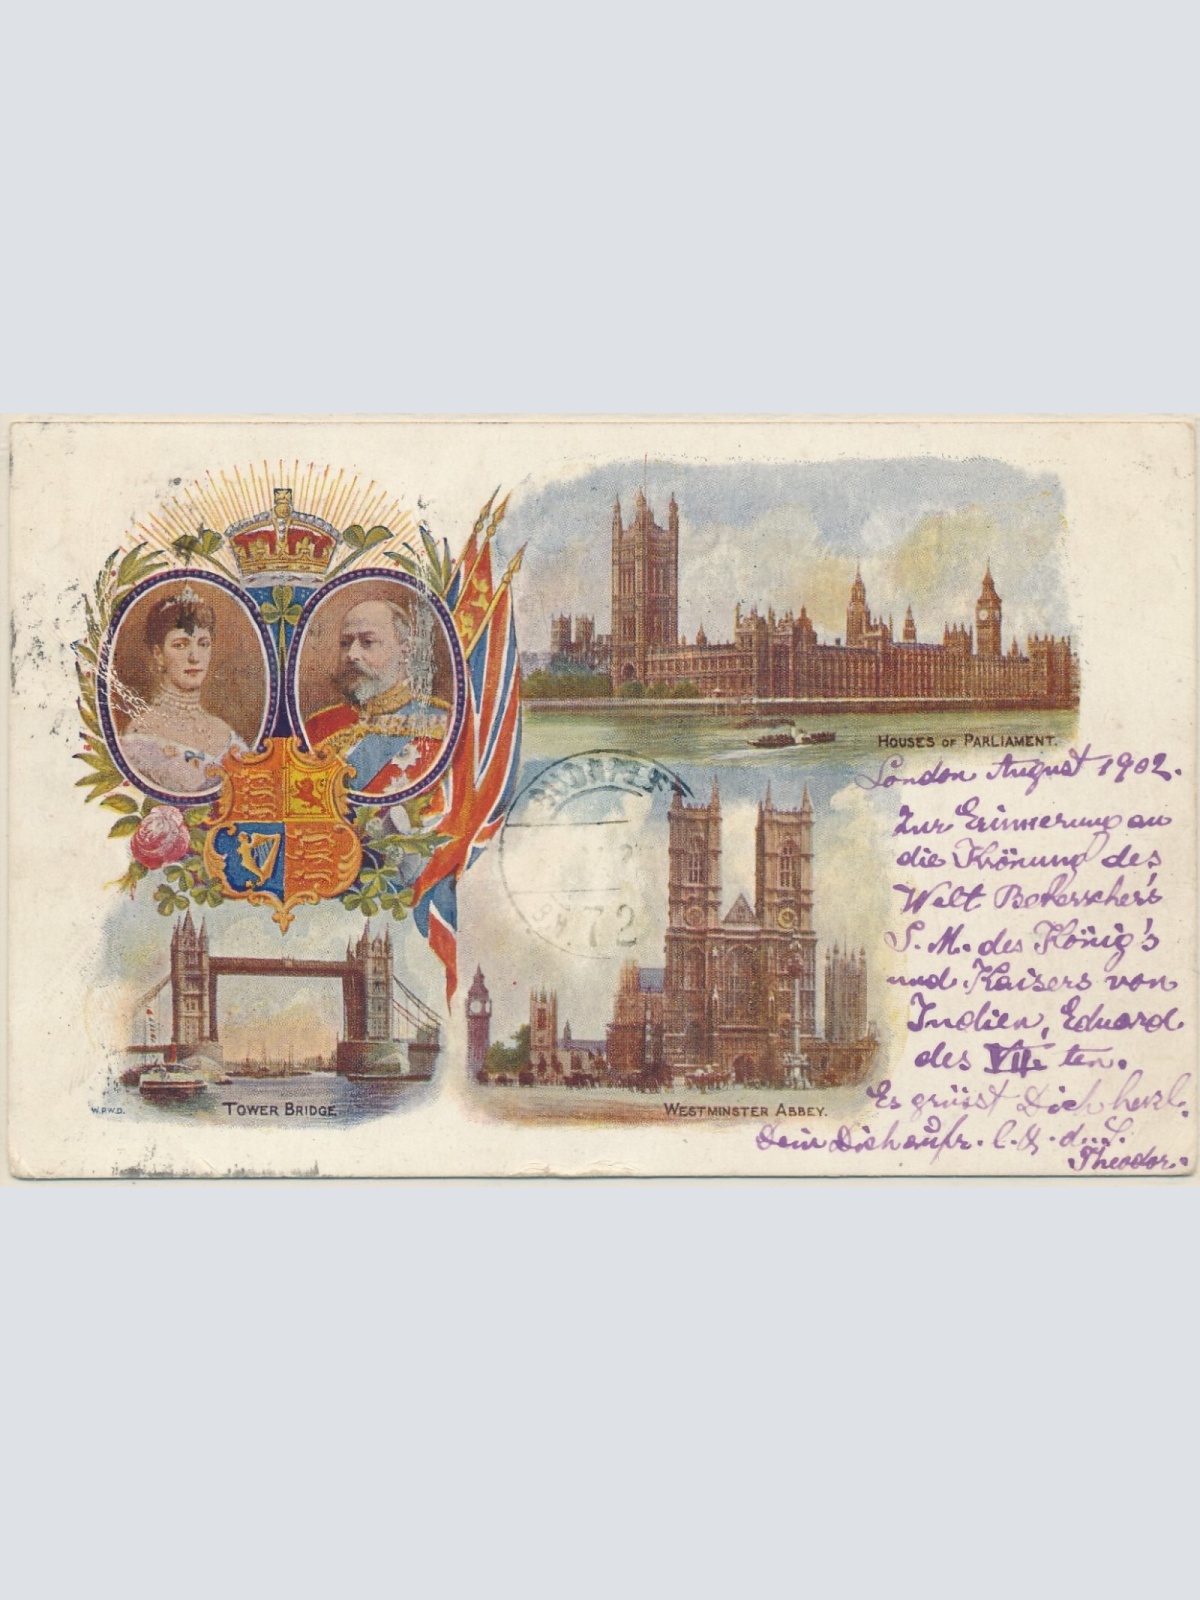 HOUSES OF PARLIAMENT.
London August 1902.
Zur Erinnerung an
die Krönung des
Welt Beherrscher's
S. M. des König's
und Kaisers von
Indien, Eduard
des VII ten.
Es grüsst Dich herzl.
Dein Dich aufr. l. d. S.
Theodor.
BUDAPEST
72
W.P.W.D.
TOWER BRIDGE
WESTMINSTER ABBEY.